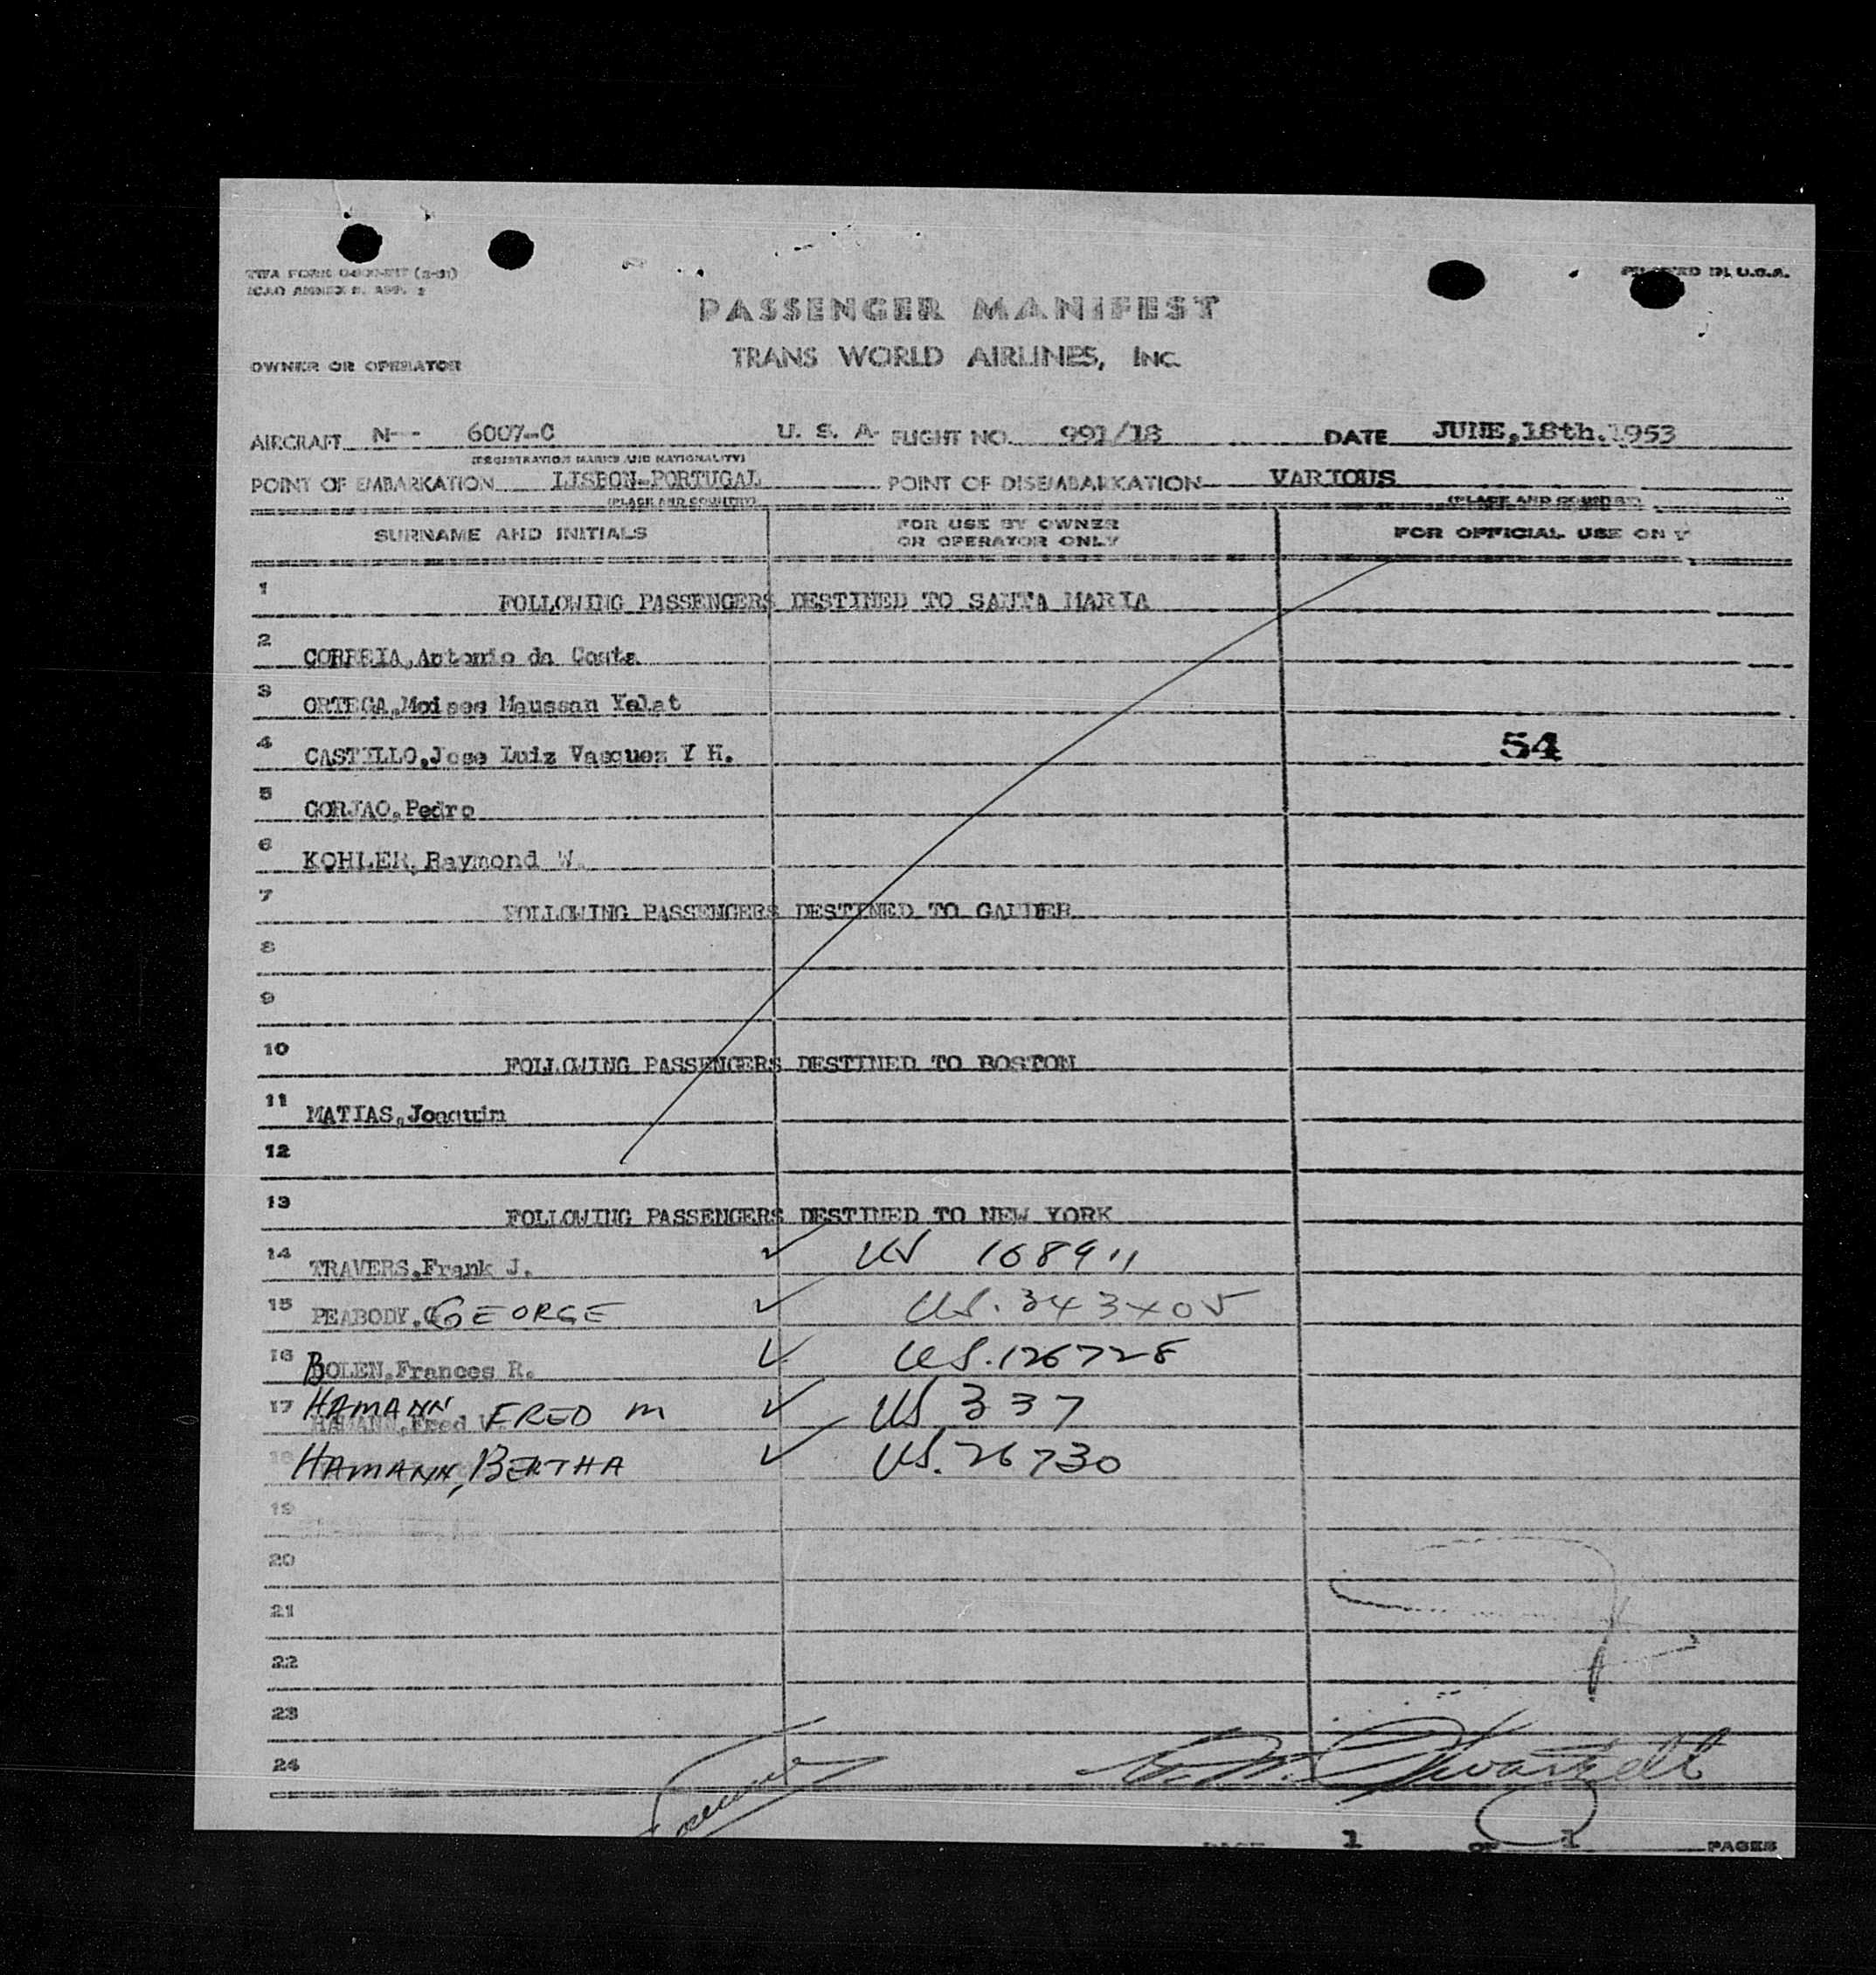 ICAO ANNEX 9, APP. 2
PRINTED IN U.S.A.
PASSENGER MANIFEST
OWNER OR OPERATOR
TRANS WORLD AIRLINES, INC.
AIRCRAFT N-- 6007-C U. S. A. FLIGHT NO. 991/18 DATE JUNE,18th.1953
(REGISTRATION MARKS AND NATIONALITY)
POINT OF EMBARKATION LISBON-PORTUGAL POINT OF DISEMBARKATION VARIOUS
(PLACE AND COUNTRY) (PLACE AND COUNTRY)
SURNAME AND INITIALS FOR USE BY OWNER OR OPERATOR ONLY FOR OFFICIAL USE ONLY
1 FOLLOWING PASSENGERS DESTINED TO SANTA MARIA
2 CORREIA,Antonio da Costa
3 ORTEGA,Moises Maussan Yalat
4 CASTILLO,Jose Luiz Vasquez Y H. 54
5 CORJAO,Pedro
6 KOHLER,Raymond W.
7 FOLLOWING PASSENGERS DESTINED TO GANDER
8
9
10 FOLLOWING PASSENGERS DESTINED TO BOSTON
11 MATIAS,Joaquim
12
13 FOLLOWING PASSENGERS DESTINED TO NEW YORK
14 TRAVERS,Frank J. ✓ US 168911
15 PEABODY,GEORGE ✓ US.343405
16 BOLEN,Frances R. ✓ US.126728
17 HAMANN FRED M ✓ US 337
HAMANN,Fred
18 HAMANN, BERTHA ✓ US.26730
19
20
21
22
23
24
PAGE 1 OF 1 PAGES